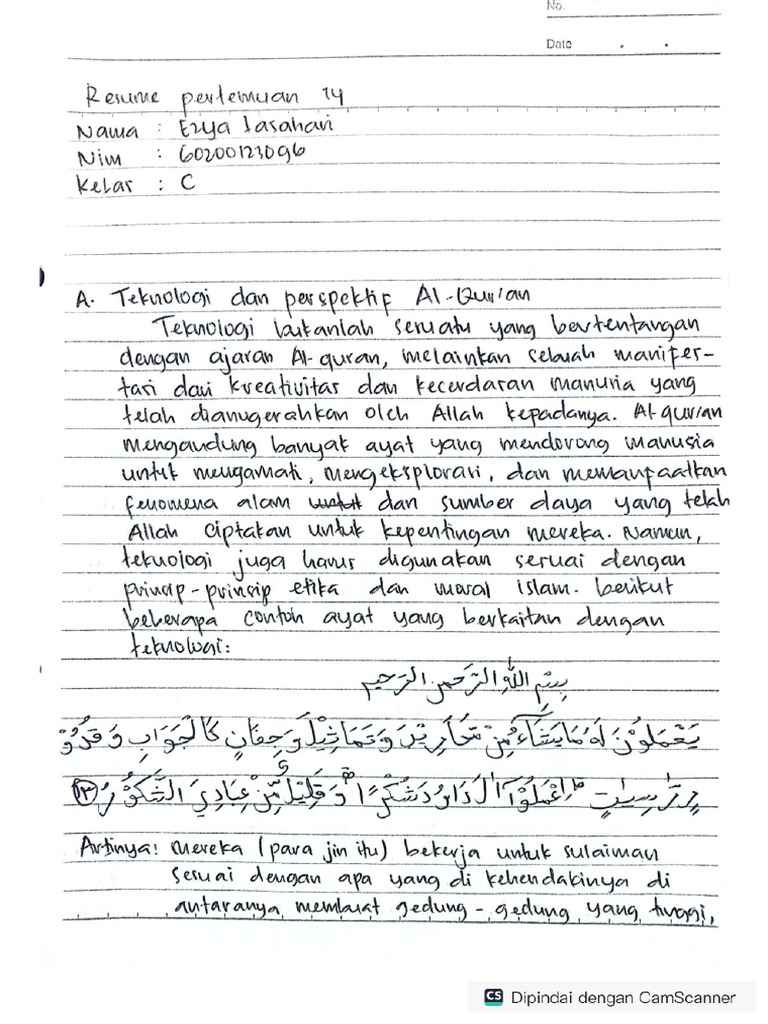 No.
Date
Resume pertemuan 14
Nama : Ezya Iasahari
Nim : 60200123096
Kelas : C
A. Teknologi dan perspektif Al-Qur'an
Teknologi bukanlah sesuatu yang bertentangan
dengan ajaran Al-quran, melainkan sebuah manifes-
tasi dari kreativitas dan kecerdasan manusia yang
telah dianugerahkan oleh Allah kepadanya. Al-qur'an
mengandung banyak ayat yang mendorong manusia
untuk mengamati, mengeksplorasi, dan memanfaatkan
fenomena alam dan sumber daya yang telah
Allah ciptakan untuk kepentingan mereka. Namun,
teknologi juga harus digunakan sesuai dengan
prinsip-prinsip etika dan moral islam. berikut
beberapa contoh ayat yang berkaitan dengan
teknologi:
بِسْمِ اللّٰهِ الرَّحْمٰنِ الرَّحِيْمِ
يَعْمَلُوْنَ لَهٗ مَا يَشَاۤءُ مِنْ مَّحَارِيْبَ وَتَمَاثِيْلَ وَجِفَانٍ كَالْجَوَابِ وَقُدُوْ
رٍ رّٰسِيٰتٍ ۗ اِعْمَلُوْٓا اٰلَ دَاوٗدَ شُكْرًا ۗ وَقَلِيْلٌ مِّنْ عِبَادِيَ الشَّكُوْرُ ١٣
Artinya: Mereka (para jin itu) bekerja untuk sulaiman
sesuai dengan apa yang di kehendakinya di
antaranya membuat gedung-gedung yang tinggi,
CS Dipindai dengan CamScanner